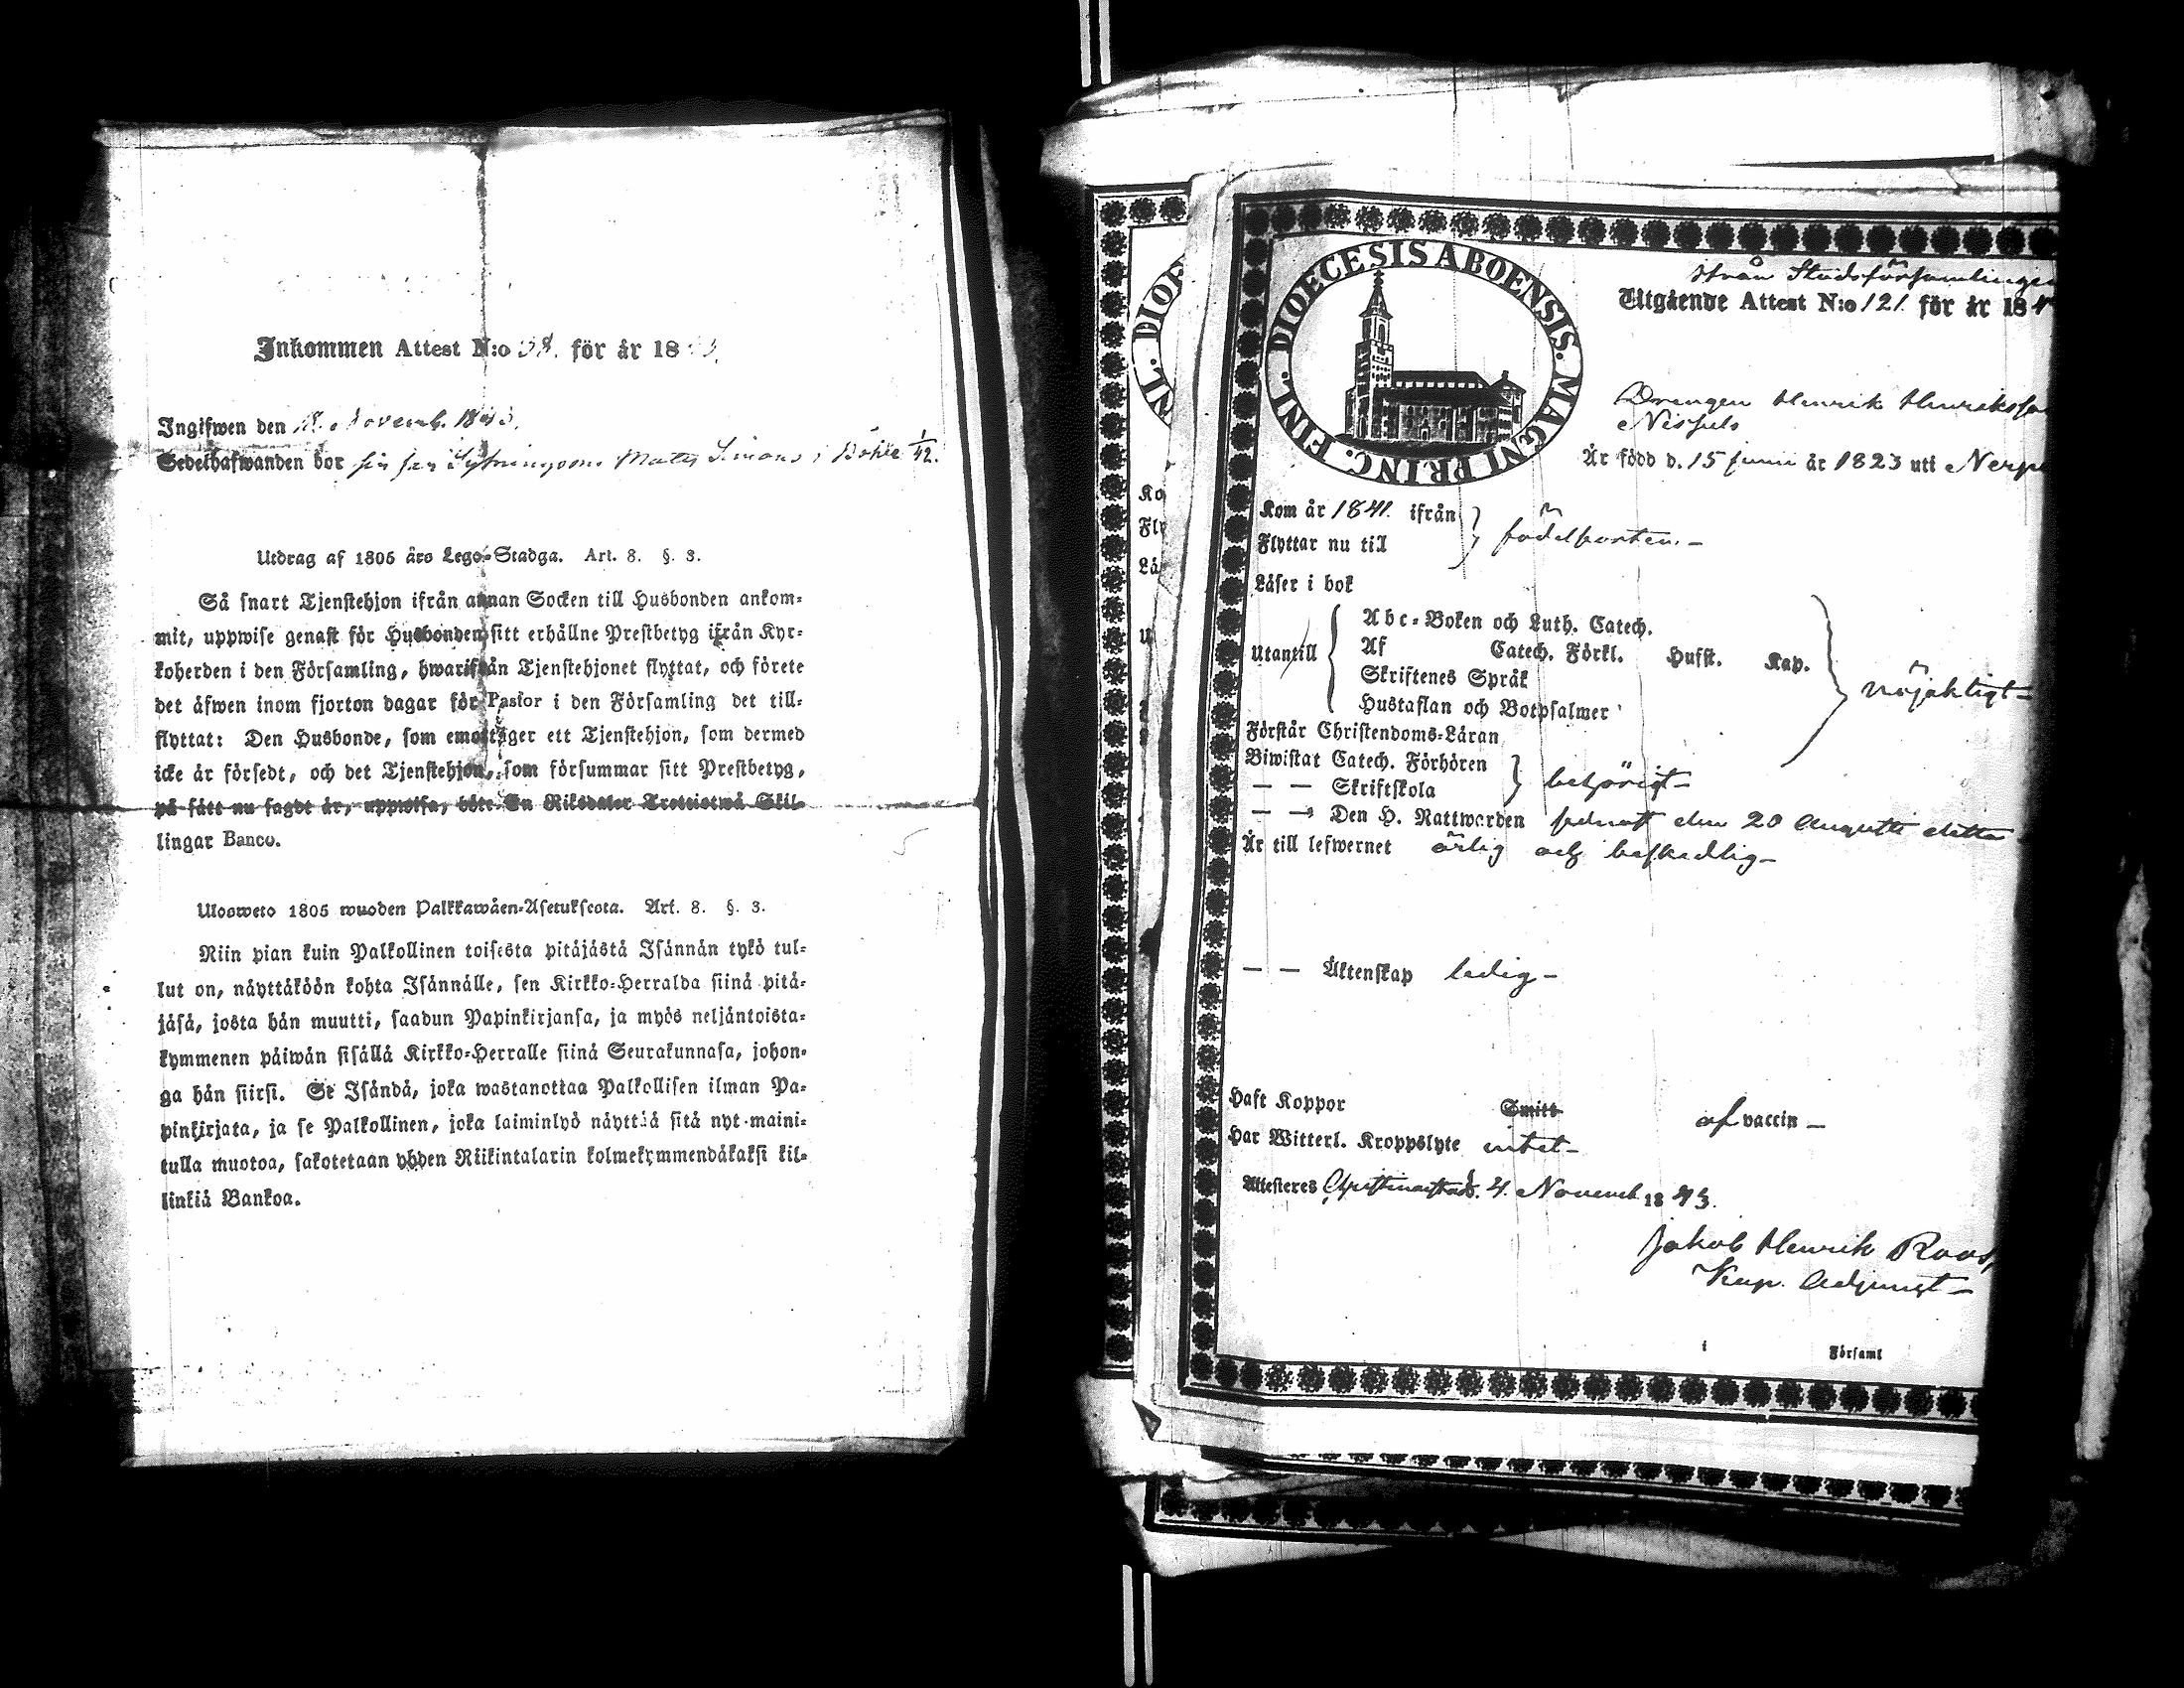 Inkommen Attest N:o 38. för år 1843.
Ingifwen den 18. Novemb. 1843.
Sedelhafwanden bor Matts Simons i Böhle 1/42.
Utdrag af 1805 års Lego-Stadga. Art. 8. §. 3.
Så snart Tjenstehjon ifrån annan Socken till Husbonden ankom-
mit, uppwise genast för Husbonden sitt erhållne Prestbetyg ifrån Kyr-
koherden i den Församling, hwarifrån Tjenstehjonet flyttat, och förete
det äfwen inom fjorton dagar för Pastor i den Församling det till-
flyttat: Den Husbonde, som emottager ett Tjenstehjon, som dermed
icke är försedt, och det Tjenstehjon, som försummar sitt Prestbetyg,
på sätt nu sagdt är, uppwisa, böte En Riksdaler Trettiotwå Skil-
lingar Banco.
Ulosweto 1805 wuoden Palkkawäen-Asetuksesta. Art. 8. §. 3.
Niin pian kuin Palkollinen toisesta pitäjästä Isännän tykö tul-
lut on, näyttäköön kohta Isännälle, sen Kirkko-Herralda siinä pitä-
jäsä, josta hän muutti, saadun Papinkirjansa, ja myös neljäntoista-
kymmenen päiwän sisällä Kirkko-Herralle siinä Seurakunnasa, johon-
ga hän siirsi. Se Isändä, joka wastanottaa Palkollisen ilman Pa-
pinkirjata, ja se Palkollinen, joka laiminlyö näyttää sitä nyt maini-
tulla muotoa, sakotetaan yhden Riikintalarin kolmekymmendäkaksi kil-
linkiä Bankoa.
DIOECESIS ABOENSIS. MAGNI PRINC. FINL.
ifrån Stadsförsamlingen
Utgående Attest N:o 121. för år 184
Drengen Henrik Henriksso
Nissels
Är född d. 15 Junii år 1823 uti Nerp
Kom år 1841. ifrån
Flyttar nu till } födelsorten.-
Läser i bok
Utantill
Abc-Boken och Luth. Catech.
Af Catech. Förkl. Husst. Kap.
Skriftenes Språk
Hustaflan och Botpsalmer
nöjaktigt-
Förstår Christendoms-Läran
Biwistat Catech. Förhören
— — Skriftskola } behörigt-
— — Den H. Nattwarden sednast den 20 Augusti detta
Är till lefwernet ärlig och beskedlig-
— — Äktenskap ledig-
Haft Koppor Smitt af vaccin —
Har Witterl. Kroppslyte intet-
Attesteres Christinæstad d. 4. Novemb. 1843.
Jakob Henrik Roos,
Kap. Adjungt-
i Församl
DIOE
NL.
Ko
Fly
Lä
U